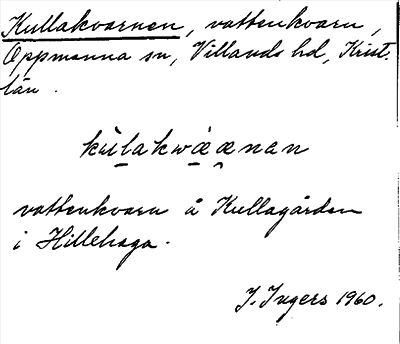 Kullakvarnen, vattenkvarn,
Oppmanna sn, Villands hd, Krist.
län.
kùlakwæ̀ænan
vattenkvarn å Kullagården
i Hillehaga.
J. Ingers 1960.